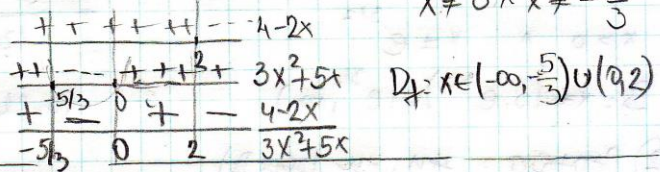 x ≠ 0 ∧ x ≠ -5/3
+ + + + ++ --- 4-2x
++ --- + + + + 3x²+5x
2
-5/3 0
+ - + - (4-2x)/(3x²+5x)
-5/3 0 2
Df: x∈(-∞,-5/3)∪(0,2)